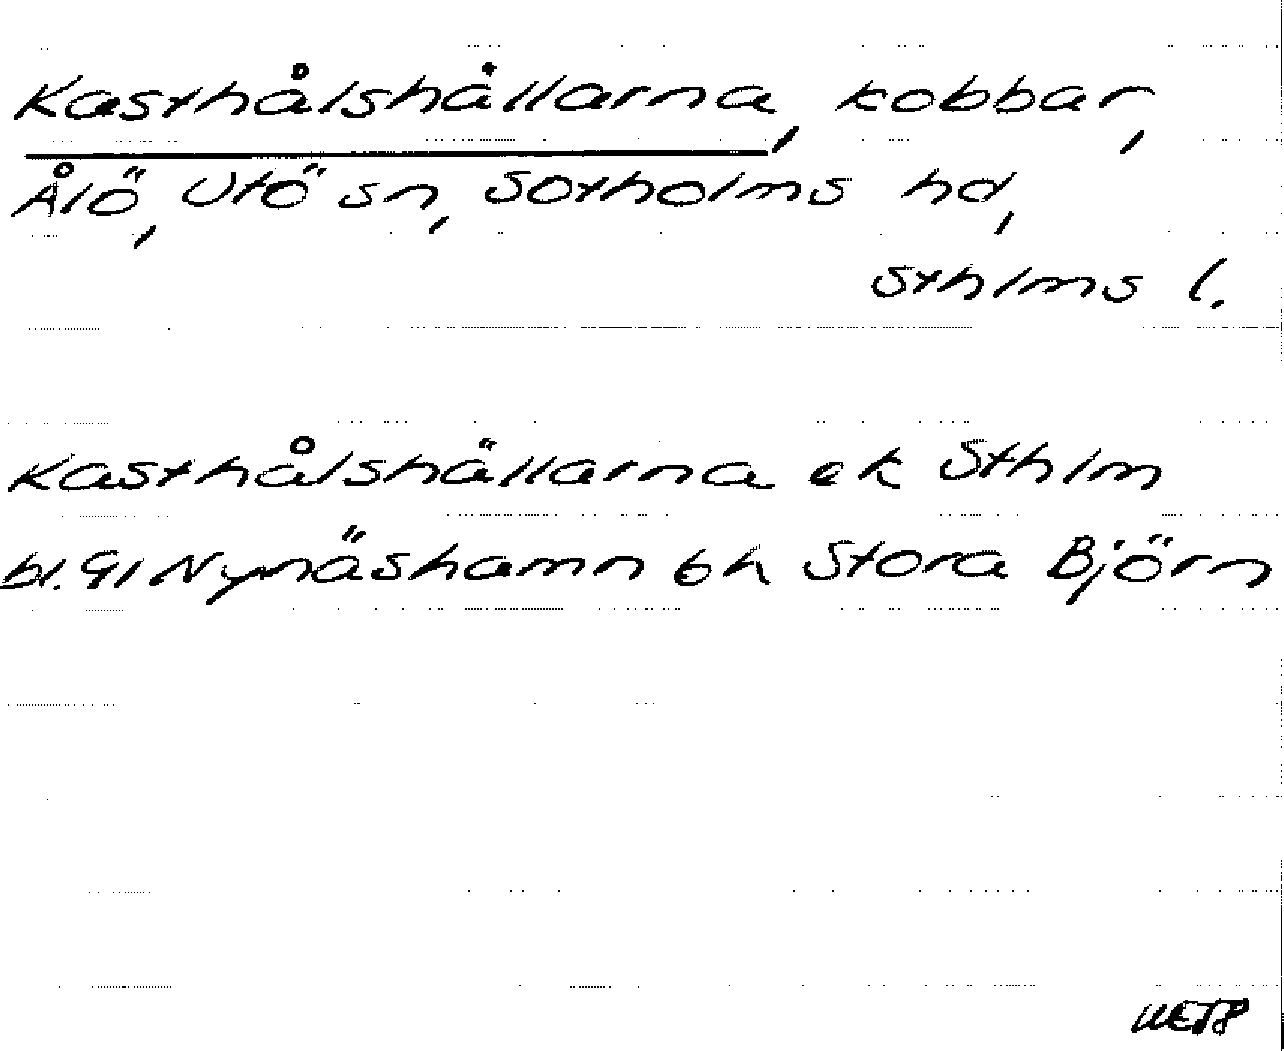 Kasthålshällarna, kobbar,
Ålö, Utö sn, Sotholms hd,
Sthlms l.
Kasthålshällarna ek Sthlm
bl. 91 Nynäshamn 6h Stora Björn